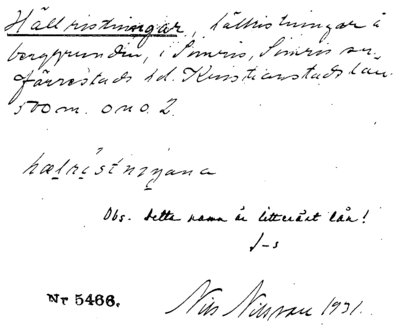 Hällristningar, hällristningar å
berggrunden, i Simris, Simris sn.
Järrestads hd. Kristianstads län.
500 m. ono. 2.
hælristniŋana
Obs. Detta namn är litterärt lån!
J-s
Nr 5466.
Nils Nilsson 1931.